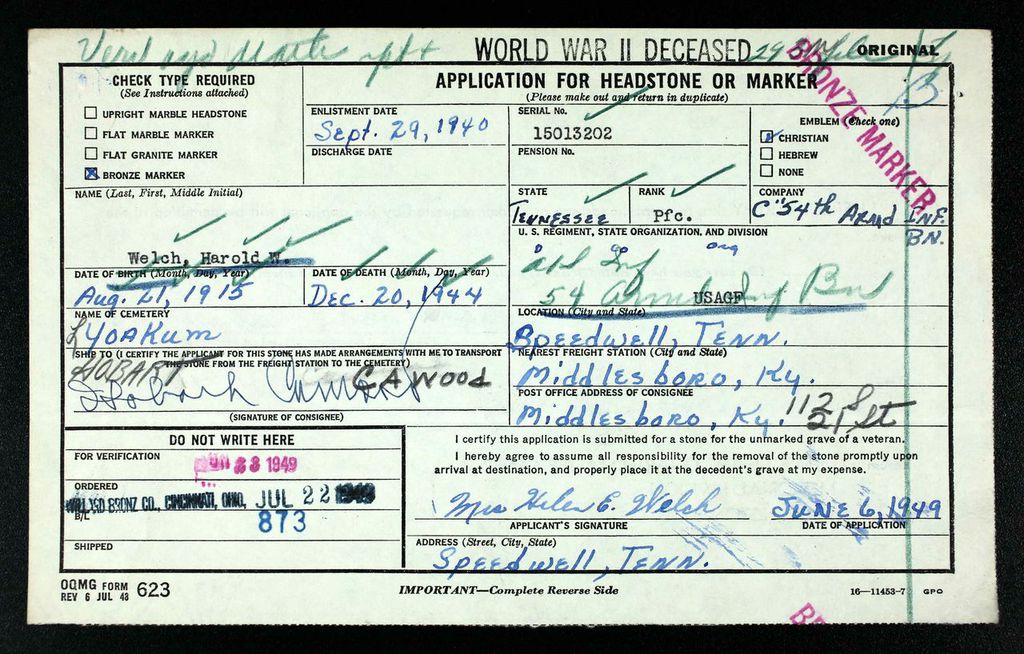 WORLD WAR II DECEASED
ORIGINAL
CHECK TYPE REQUIRED
(See Instructions attached)
UPRIGHT MARBLE HEADSTONE
FLAT MARBLE MARKER
FLAT GRANITE MARKER
BRONZE MARKER
APPLICATION FOR HEADSTONE OR MARKER
(Please make out and return in duplicate)
ENLISTMENT DATE
Sept. 29, 1940
DISCHARGE DATE
SERIAL No.
15013202
PENSION No.
EMBLEM (Check one)
CHRISTIAN
HEBREW
NONE
BRONZE MARKER
NAME (Last, First, Middle Initial)
Welch, Harold W.
STATE
TENNESSEE
RANK
Pfc.
COMPANY
"C" 54th ARMD INF.
BN.
U. S. REGIMENT, STATE ORGANIZATION, AND DIVISION
org
54 Armd Inf Bn
USAGF
DATE OF BIRTH (Month, Day, Year)
Aug. 21, 1915
DATE OF DEATH (Month, Day, Year)
Dec. 20, 1944
NAME OF CEMETERY
YOAKUM
LOCATION (City and State)
Speedwell, TENN.
SHIP TO (I CERTIFY THE APPLICANT FOR THIS STONE HAS MADE ARRANGEMENTS WITH ME TO TRANSPORT
THE STONE FROM THE FREIGHT STATION TO THE CEMETERY)
HOBART CAWOOD
(SIGNATURE OF CONSIGNEE)
NEAREST FREIGHT STATION (City and State)
Middlesboro, Ky.
POST OFFICE ADDRESS OF CONSIGNEE
Middlesboro, Ky. 112 S 21 St
DO NOT WRITE HERE
FOR VERIFICATION
JUN 23 1949
ORDERED
CO., CINCINNATI, OHIO, JUL 22 1949
B/L
873
SHIPPED
I certify this application is submitted for a stone for the unmarked grave of a veteran.
I hereby agree to assume all responsibility for the removal of the stone promptly upon
arrival at destination, and properly place it at the decedent's grave at my expense.
Mrs Helen E. Welch
JUNE 6, 1949
APPLICANT'S SIGNATURE
DATE OF APPLICATION
ADDRESS (Street, City, State)
Speedwell, TENN.
OQMG FORM 623
REV 6 JUL 48
IMPORTANT—Complete Reverse Side
16—11453-7 GPO